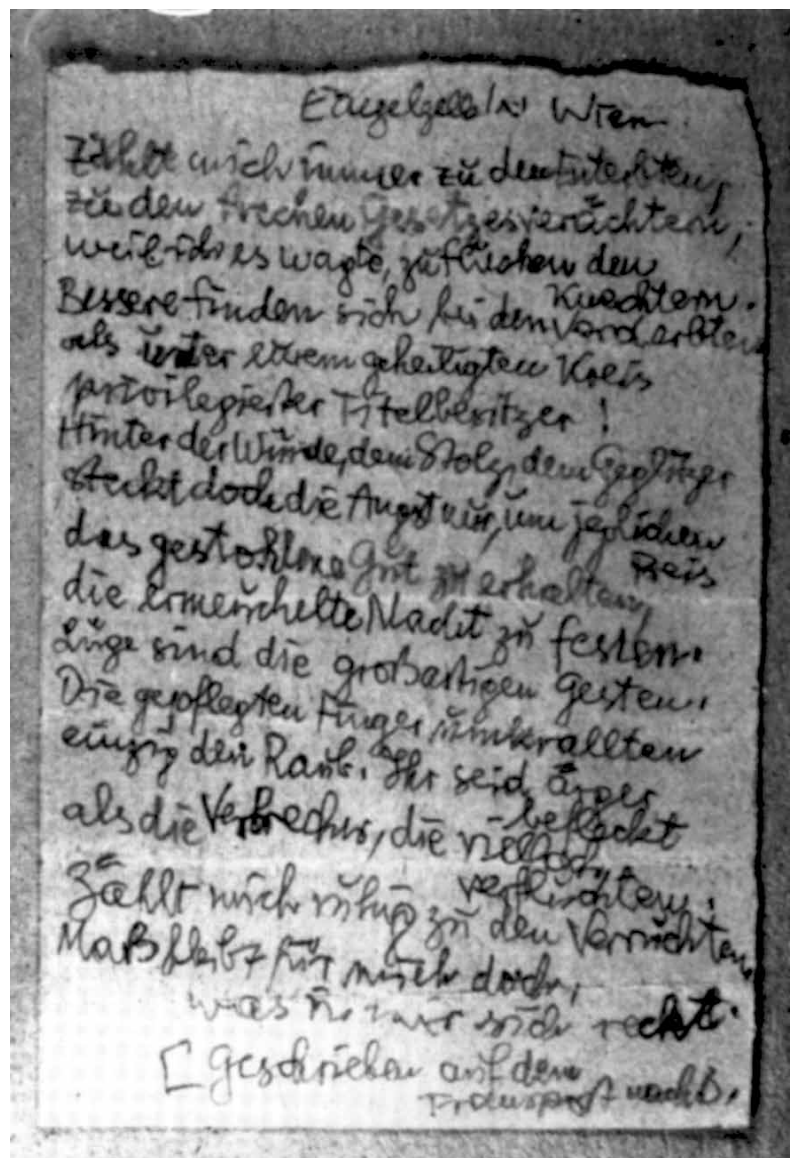 Wien
Zählt mich immer zu den Enterbten,
zu den frechen Gesetzesverächtern,
weil ich es wagte, zu fluchen den
Knechtern.
Bessere finden sich bei den Verderbten
als unter eurem geheiligten Kreis
privilegierter Titelbesitzer!
Hinter der Würde, dem Stolz, dem Geglitzer
steckt doch die Angst nur, um jeglichen
Preis
das gestohlne Gut zu erhalten,
die ermeuchelte Macht zu festen.
Lüge sind die großartigen Gesten.
Die gepflegten Finger umkrallten
einzig den Raub. Ihr seid ärger
befleckt
als die Verbrecher, die vielfach
verfluchten.
Zählt mich ruhig zu den Verruchten.
Maß bleibt für mich doch,
was in mir sich reckt.
[Geschrieben auf dem
Transport nach D.